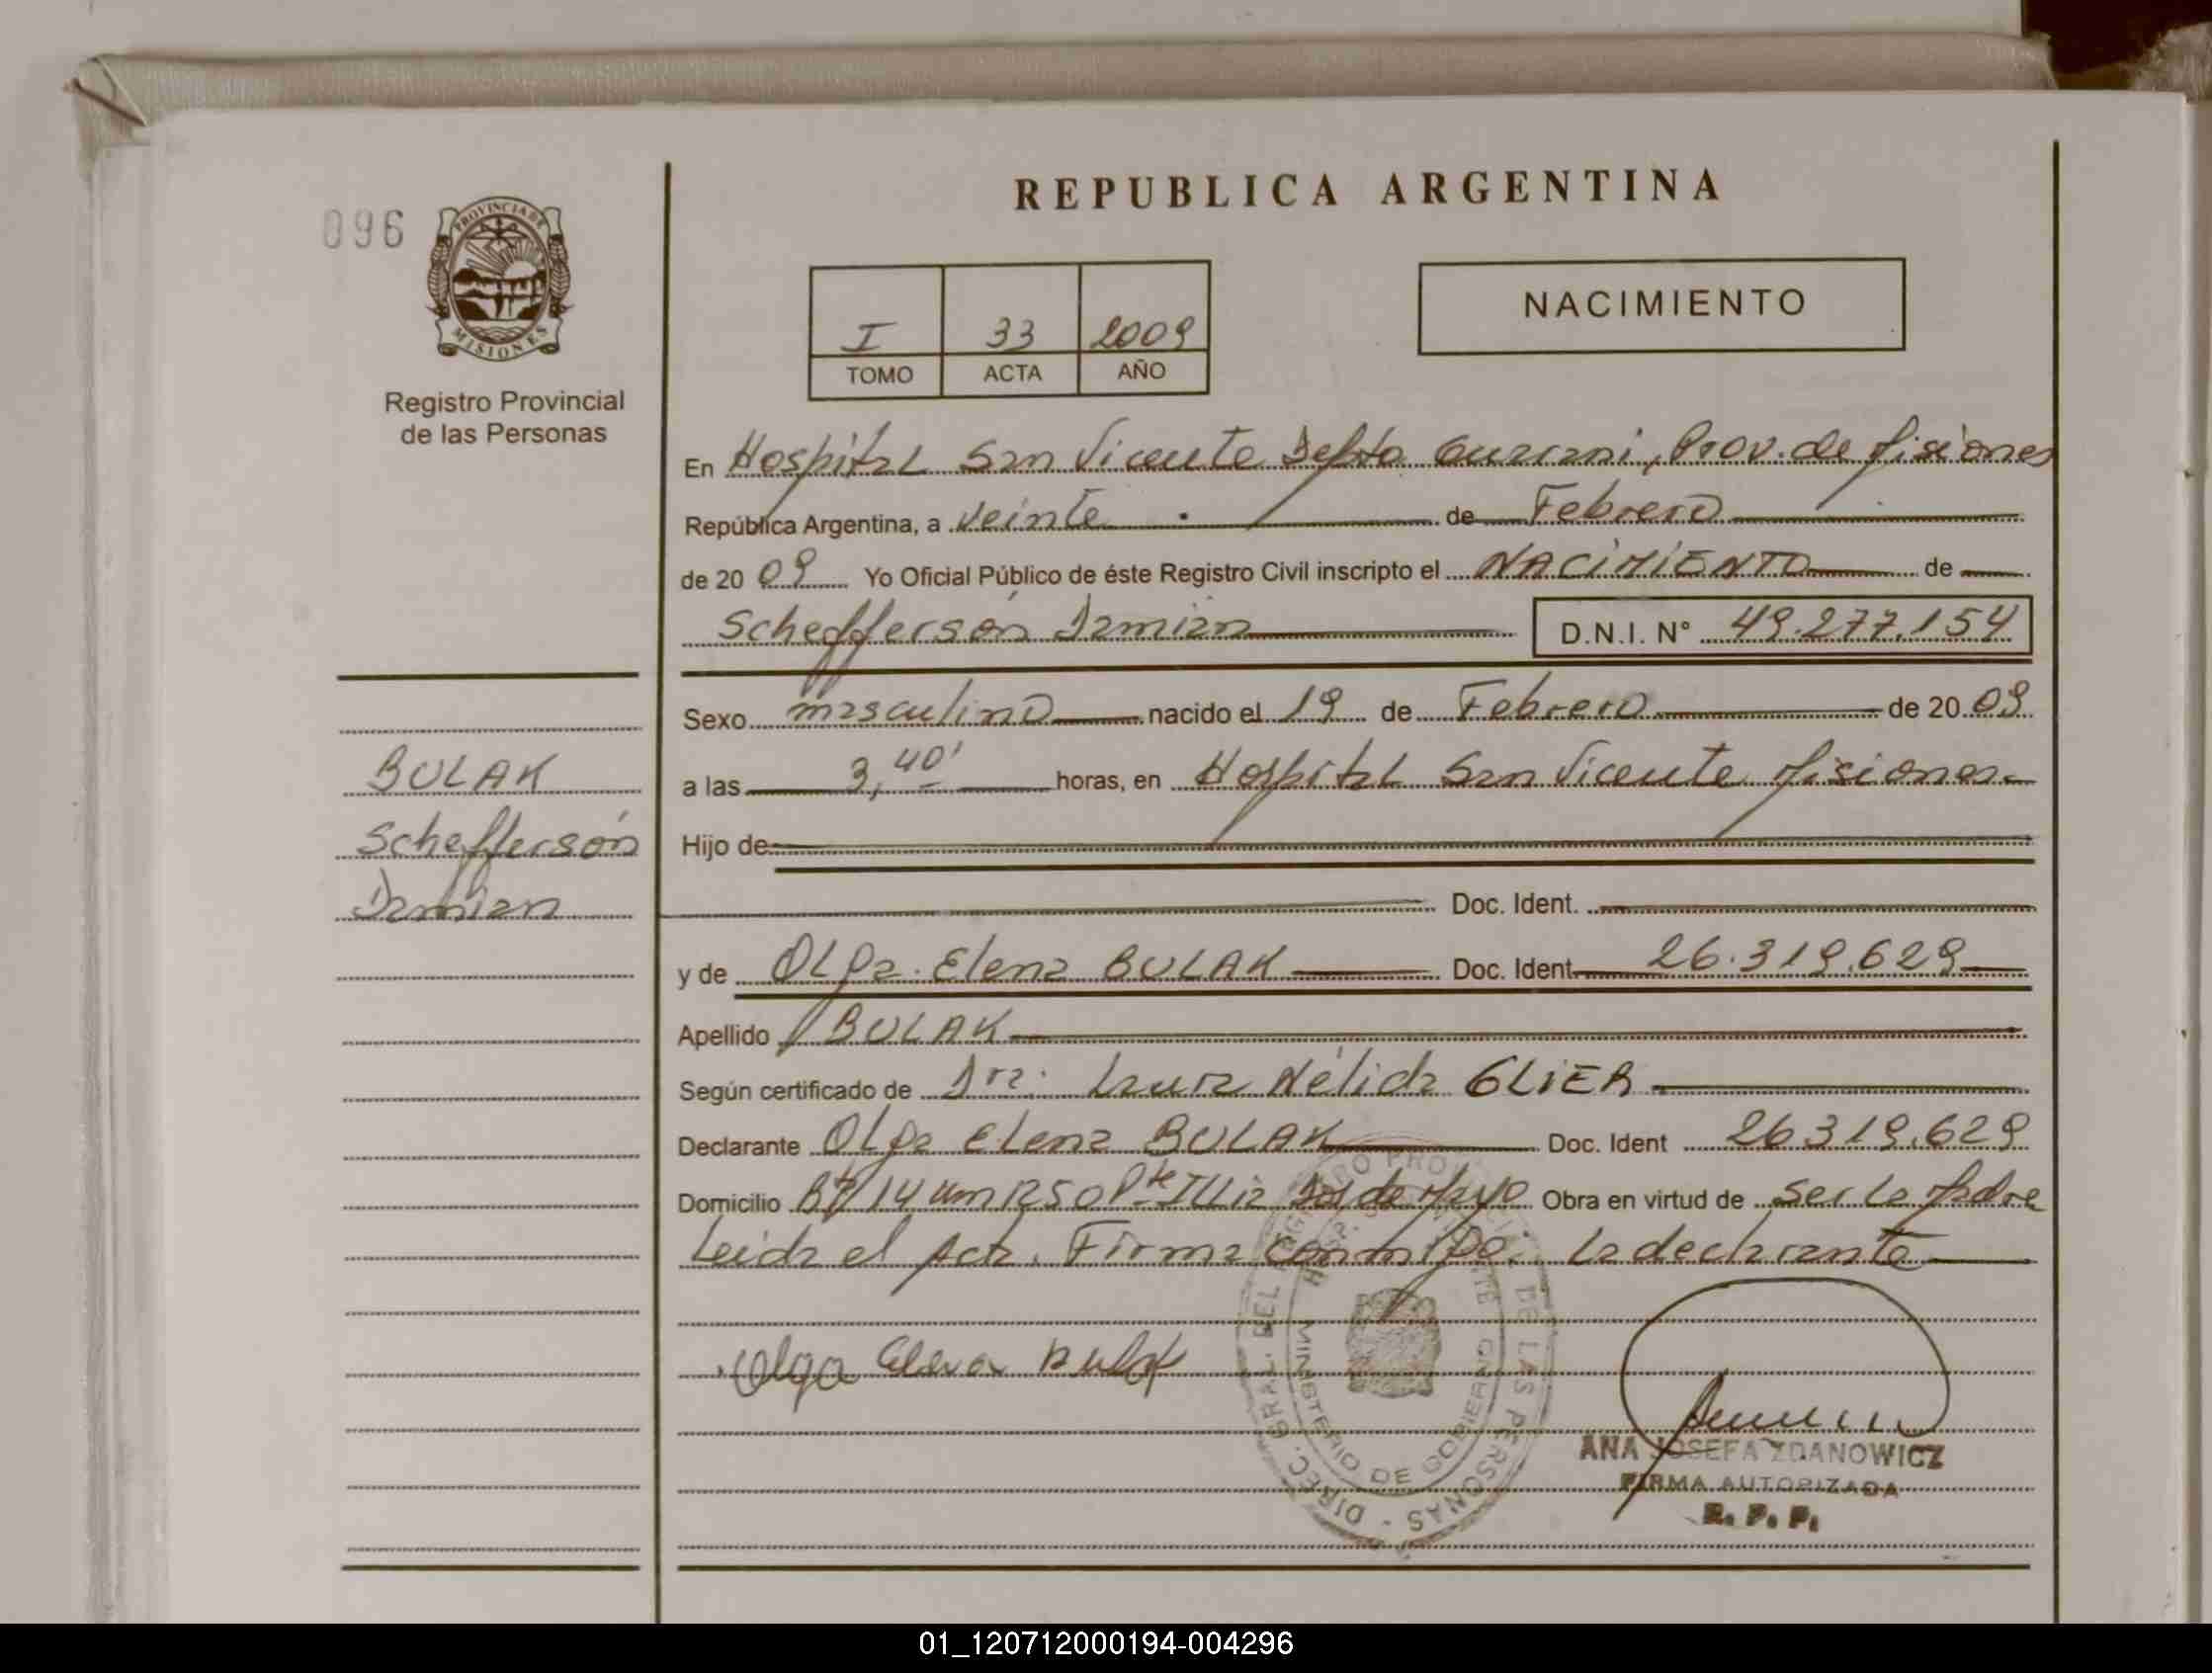 REPUBLICA ARGENTINA
096
PROVINCIA DE
MISIONES
Registro Provincial
de las Personas
I 33 2009
TOMO ACTA AÑO
NACIMIENTO
En Hospital San Vicente Depto Guarani, Prov. de Misiones
República Argentina, a veinte de Febrero
de 20 09 Yo Oficial Público de éste Registro Civil inscripto el NACIMIENTO de
Scheffersón Damian D.N.I. N° 49.277.154
Sexo masculino nacido el 19 de Febrero de 20 09
a las 3,40' horas, en Hospital San Vicente Misiones
Hijo de
Doc. Ident.
y de Olga Elena BULAK Doc. Ident 26.319.629
Apellido BULAK
Según certificado de Dra. Laura Nélida GLIER
Declarante Olga Elena BULAK Doc. Ident 26319.629
Domicilio 14 Km 1250 Pte Illia Dos de Mayo Obra en virtud de ser la Madre
Leida el Acta. Firma Conmigo. La declarante
BULAK
Scheffersón
Damian
Olga Elena Bulak
DIREC. GRAL. DEL REGISTRO PROVINCIAL DE LAS PERSONAS -
MINISTERIO DE GOBIERNO
ANA JOSEFA ZDANOWICZ
FIRMA AUTORIZADA
R. P. P.
01_120712000194-004296